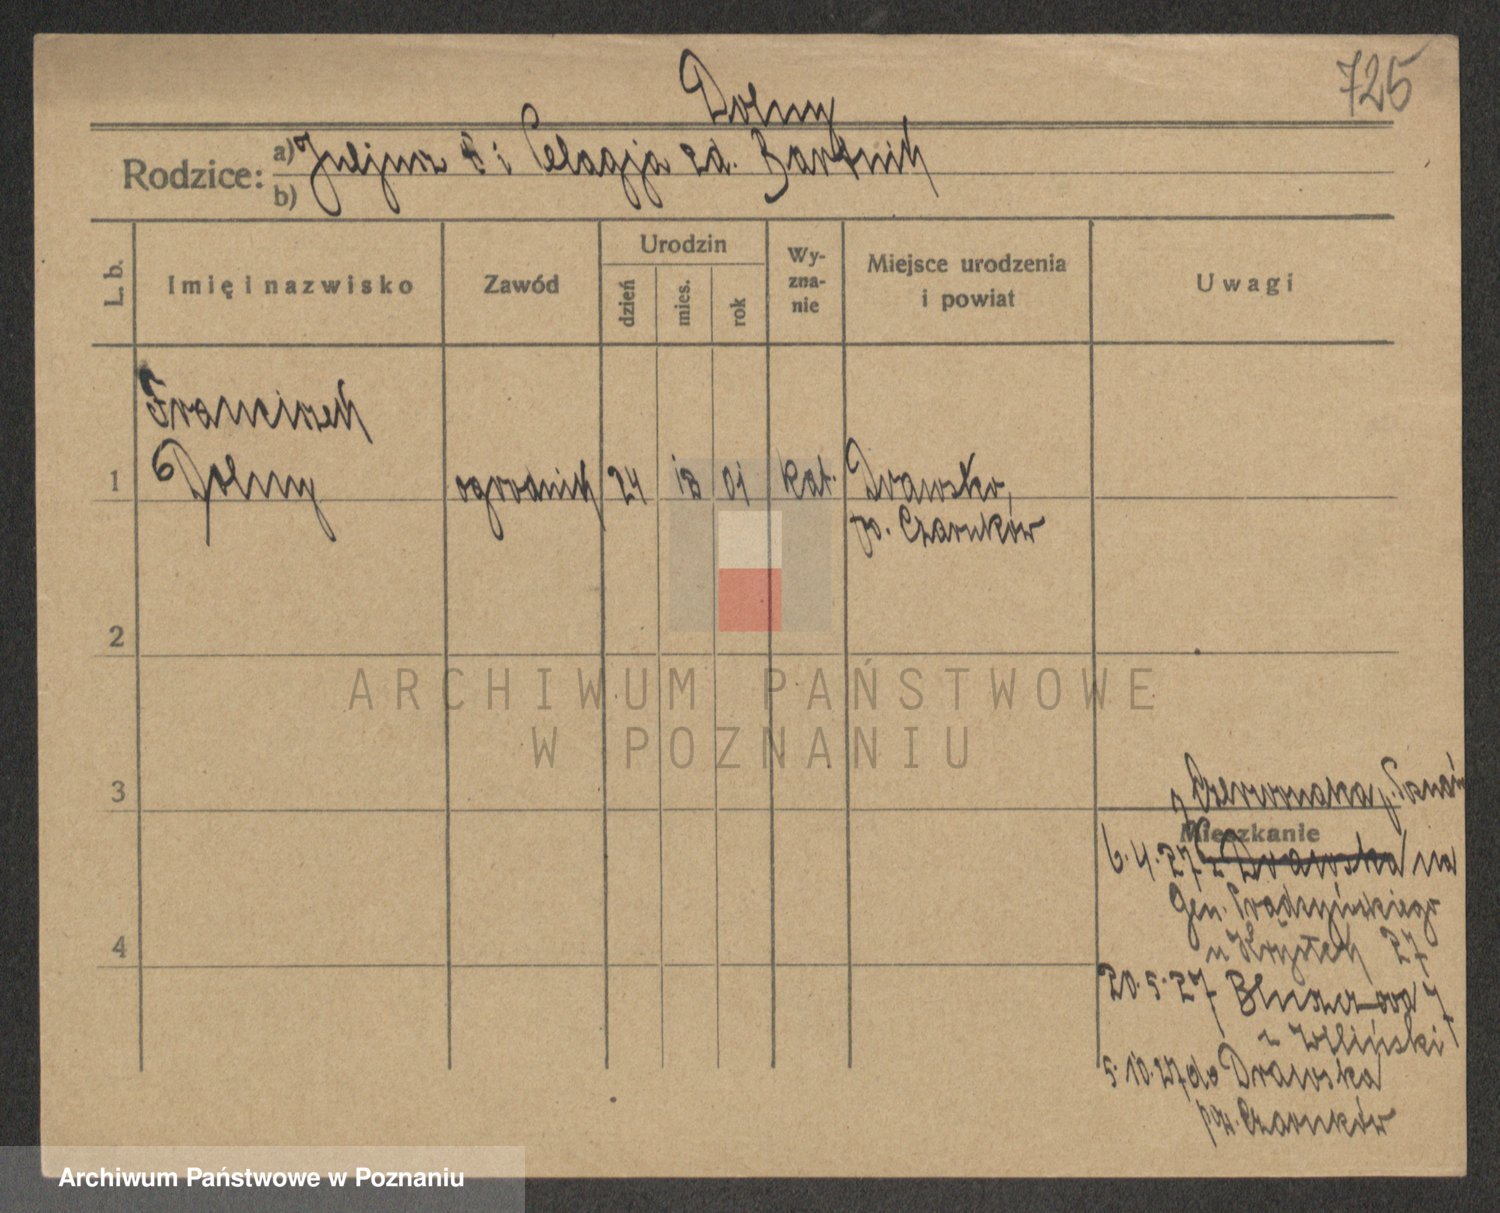 725
Dolny
Rodzice: a) Juljusz i Pelagja zd. Bartnik
b)
L. b. Imię i nazwisko Zawód Urodzin dzień mies. rok Wy-zna-nie Miejsce urodzenia i powiat Uwagi
Franciszek
1 Dolny ogrodnik 24 12 01 kat. Drawsko,
p. Czarnków
2
ARCHIWUM PAŃSTWOWE
W POZNANIU
3
z Czerwonaka p. Poznań
Mieszkanie
6.4.27 z Drawska na
Gen. Prądzyńskiego
u 27
20.5.27
u
5.10.27 do Drawska
pow. Czarnków
4
Archiwum Państwowe w Poznaniu